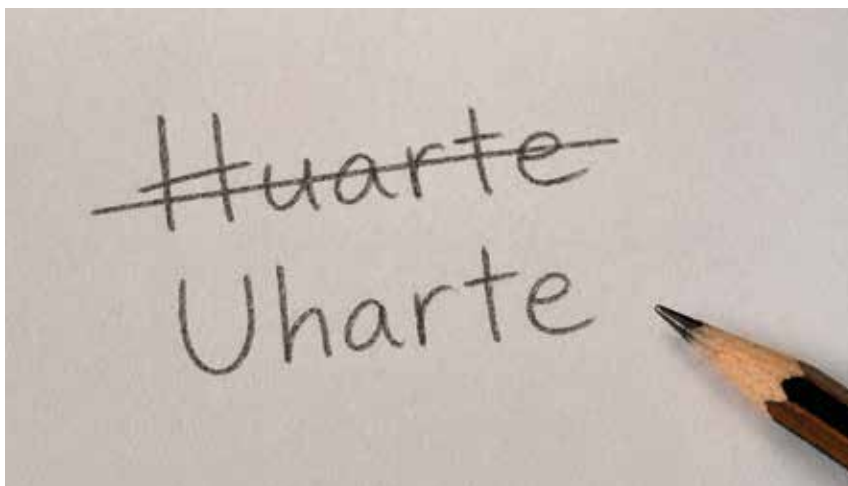 Huarte
Uharte